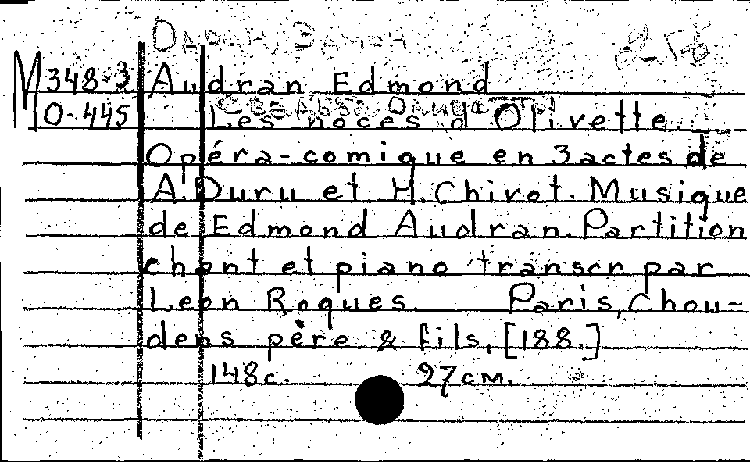 Одран, Эдмон
M 348-3 Audran Edmond
O-445 Les noces d'Olivette.
Opéra-comique en 3 actes de
A. Duru et H. Chivot. Musique
de Edmond Audran. Partition
chant et piano transcr par
Leon Roques. Paris, Chou-
dens père & fils, [188.]
148c. 27cм.